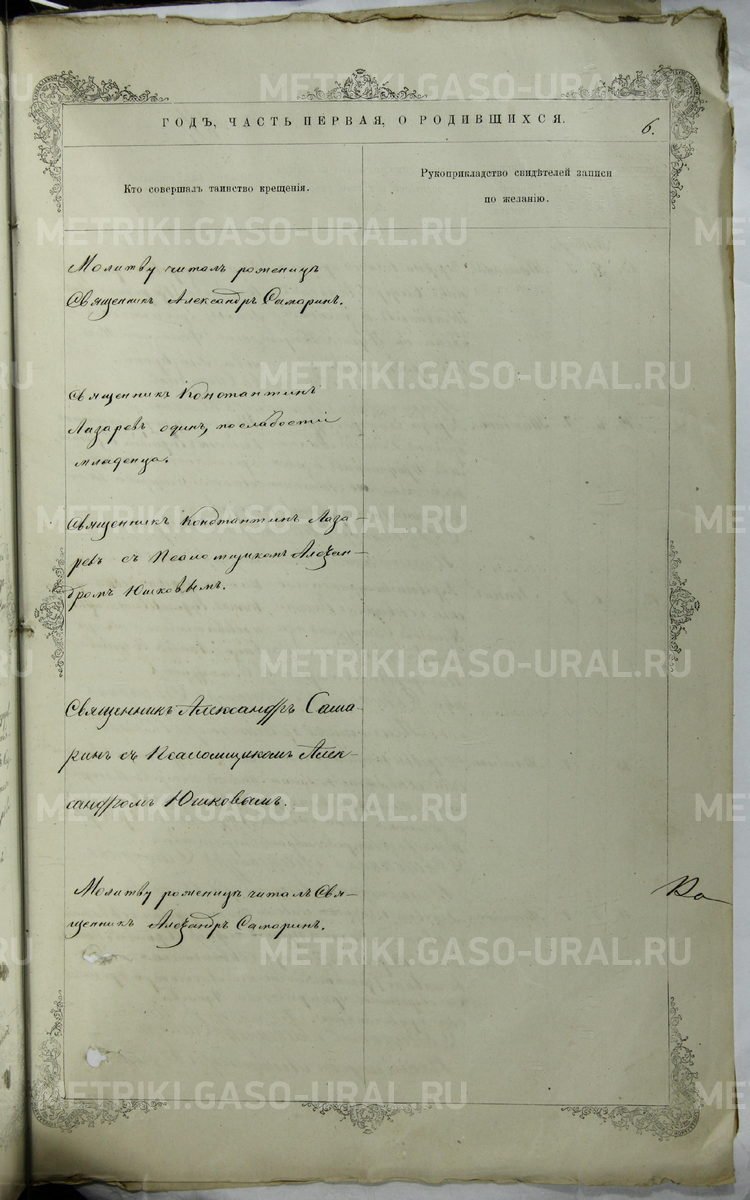 METRIKI.GASO-URAL.RU
ГОДЪ, ЧАСТЬ ПЕРВАЯ, О РОДИВШИХСЯ.
6.
Кто совершалъ таинство крещенія.
Рукоприкладство свидѣтелей записи
по желанію.
Молитву читалъ роженицѣ
Священникъ Александръ Самаринъ.
Священникъ Константинъ
Лазаревъ одинъ, по слабости
младенца.
Священникъ Константинъ Лаза-
ревъ съ Псаломщикомъ Алексан-
дромъ Юшковымъ.
Священникъ Александръ Сама-
ринъ съ Псаломщикомъ Алек-
сандромъ Юшковымъ.
Молитву роженицѣ читалъ Свя-
щенникъ Александръ Самаринъ.
Ко